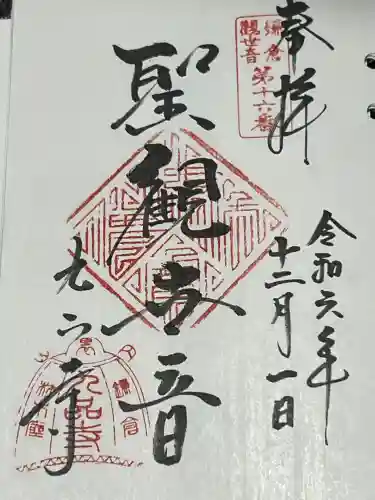 奉拝
鎌倉
観世音
第十六番
令和六年
十二月一日
聖観世音
九品寺
鎌倉
九品寺